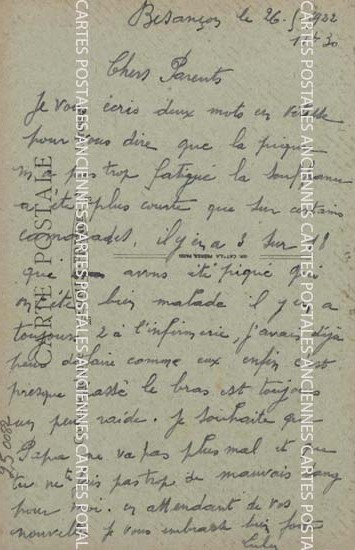 Besançon le 26-5-1922
1h 30
Chers Parents
Je vous écris deux mots en vitesse
pour vous dire que la piqure
m'a pas trop fatigué la souffrance
a été plus courte que sur certains
camarades, il y en a 3 sur 18
que avons été piqué qui
ont été bien malade il y en a
toujours 2 à l'infirmerie, j'avais déjà
peur de faire comme eux enfin c'est
presque passé le bras est toujours
un peu raide. Je souhaite que
Papa ne va pas plus mal et que
tu ne te fais pas trop de mauvais sang
pour moi. en attendant de vos
nouvelles je vous embrasse bien fort
CARTE POSTALE
95.0082
CARTES POSTALES ANCIENNES CARTES POSTALES
CARTES POSTALES ANCIENNES CARTES POSTALES
CARTES POSTALES ANCIENNES CARTES POSTALES